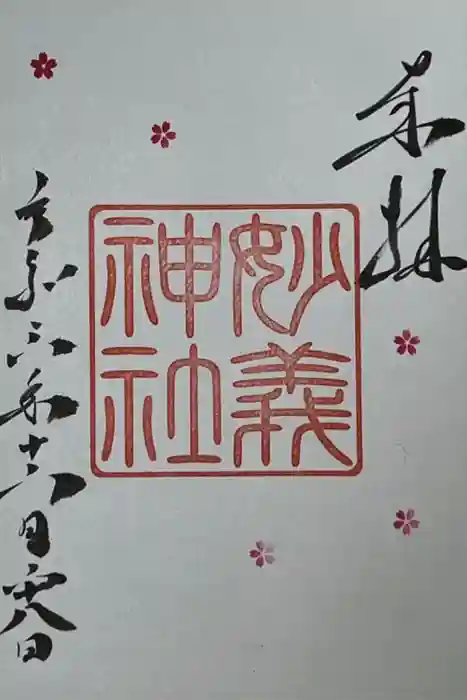 奉拝
妙義
神社
令和六年十一月廿八日